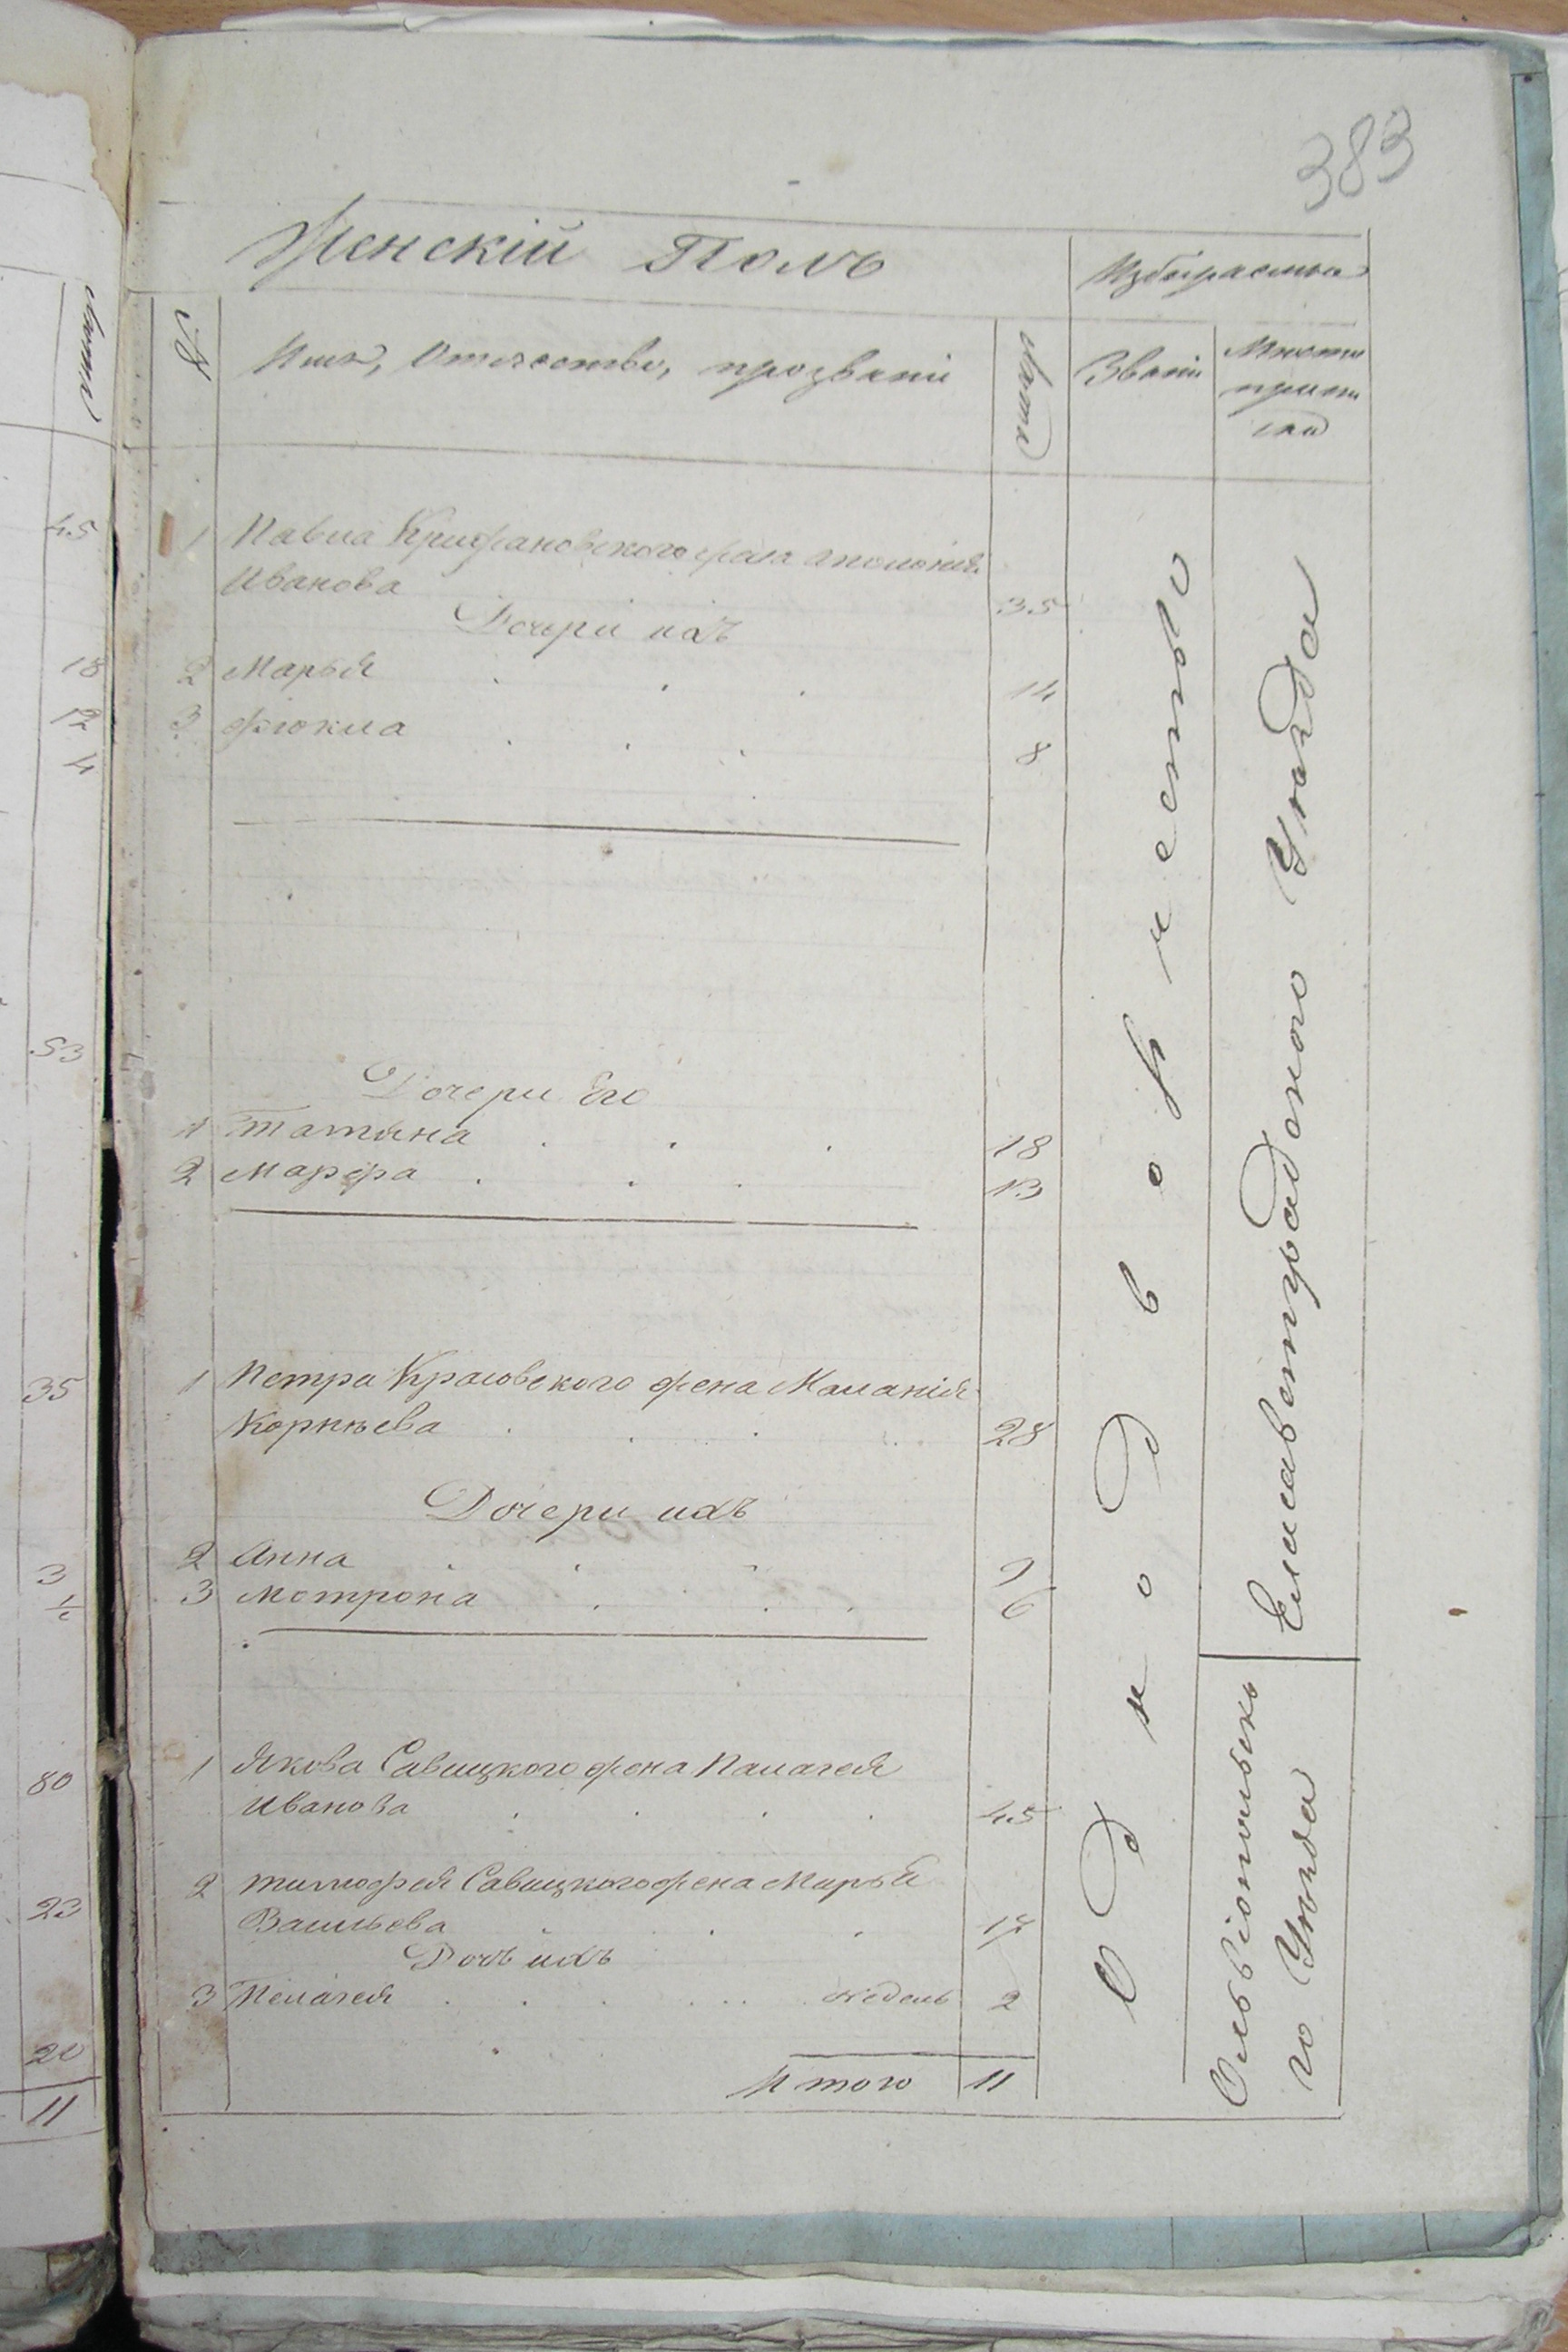 383
Женскій Полъ
Избираемыя
№
Имя, Отечество, прозваніе
Лѣта
Званіе
Мѣсто
припи
ски
Лѣта
1 Павла жена Аполонія
Иванова 35
Дочери ихъ
2 Марья . . . 14
3 Фіокла . . . 8
Дочери Его
1 Татьяна . . . 18
2 Марфа . . . 13
1 Петра Красовского жена Маланія
Корнѣева . . . . 28
Дочери ихъ
2 Анна . . . 9
3 Мотрона . . . 6
1 Якова Савицкого жена Палагея
Иванова . . . . 45
2 Тимофея Савицкого жена Марья
Васильева . . . 17
Дочь ихъ
3 Пелагея . . . . . . недель 2
Итого 11
Однодворчество
Елисаветградского Уѣзда
Ольвіопольско
го Уѣзда
45
18
12
4
53
35
3
1/2
80
23
20
11